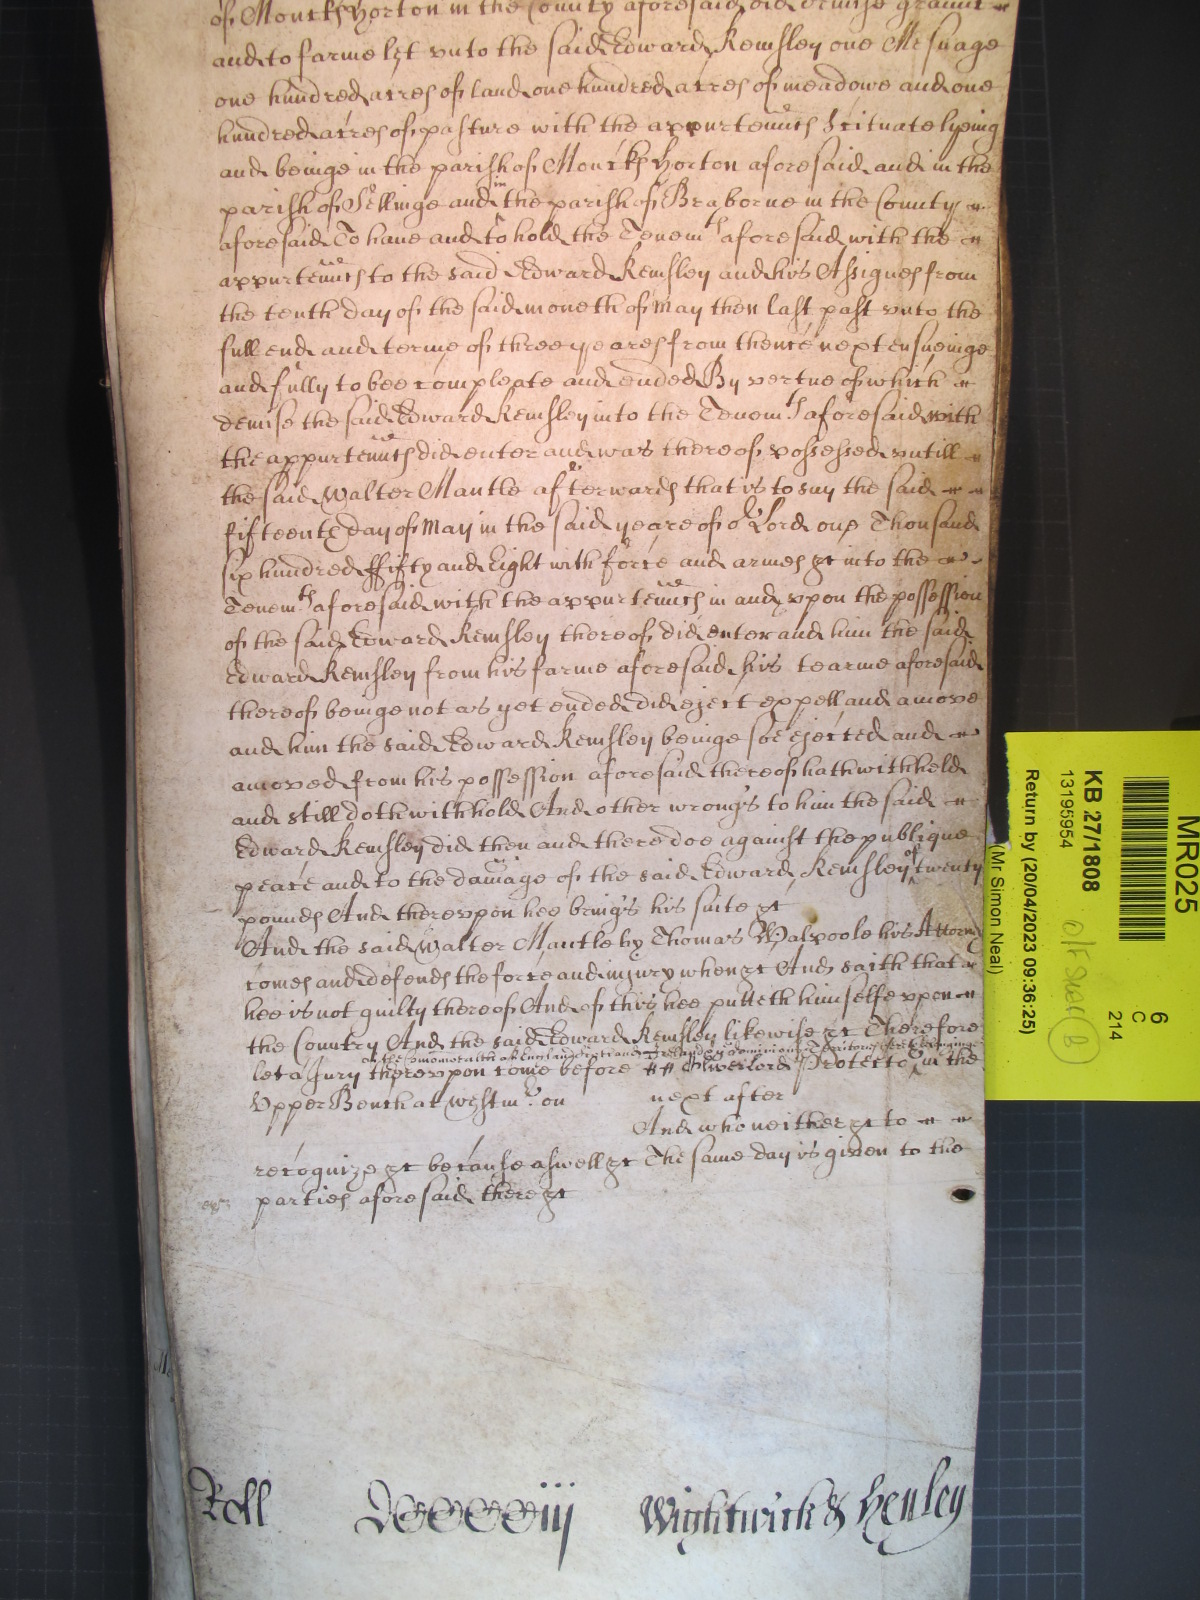 of Monckshorton in the County aforesaid did demise graunt
and to farme lett vnto the said Edward Kemsley one Mesuage
one hundred acres of land one hundred acres of meadowe and one
hundred acres of pasture with the appurtenncs scituate lyeing
and beinge in the parish of Monckshorton aforesaid and in the
parish of Sellinge and in the parish of Braborne in the County
aforesaid To haue and to hold the Tenemts aforesaid with the
appurtenncs to the said Edward Kemsley and his Assignes from
the tenth day of the said moneth of May then last past vnto the
full end and terme of three yeares from thence next ensueinge
and fully to bee compleate and ended By vertue of which
demise the said Edward Kemsley into the Tenemts aforesaid with
the appurtenncs did enter and was thereof possessed vntill
the said Walter Mantle afterwards that is to say the said
fifteenth day of May in the said yeare of or Lord one Thousand
six hundred ffifty and Eight with force and armes &c into the
Tenemts aforesaid with the appurtenncs in and vpon the possession
of the said Edward Kemsley thereof did enter and him the said
Edward Kemsley from his farme aforesaid his tearme aforesaid
thereof beinge not as yet ended did eject expell and amove
and him the said Edward Kemsley beinge soe ejected and
amoved from his possession aforesaid thereof hath withheld
and still doth withhold And other wrongs to him the said
Edward Kemsley did then and there doe against the publique
peace and to the damage of the said Edward Kemsley of twenty
pounds And therevpon hee brings his suite &c
And the said Walter Mantle by Thomas Walpoole his Attorny
comes and defends the force and injury when &c And saith that
hee is not guilty thereof And of this hee putteth himselfe vpon
the Country And the said Edward Kemsley likewise &c Therefore
of the Comonwealth of England Scotland & Ireland & ye dominions & Territories therevnto belonginge
let a Jury therevpon come before Lord Protector in the
Vpper Bench at Westmr on next after
And who neither &c to
recognize &c because aswell &c The same day is given to the
parties aforesaid there &c
Roll Wightwick & Henley
MR025
6
C
214
KB 27/1808
13195954
Return by (20/04/2023 09:36:25)
(Mr Simon Neal)
B